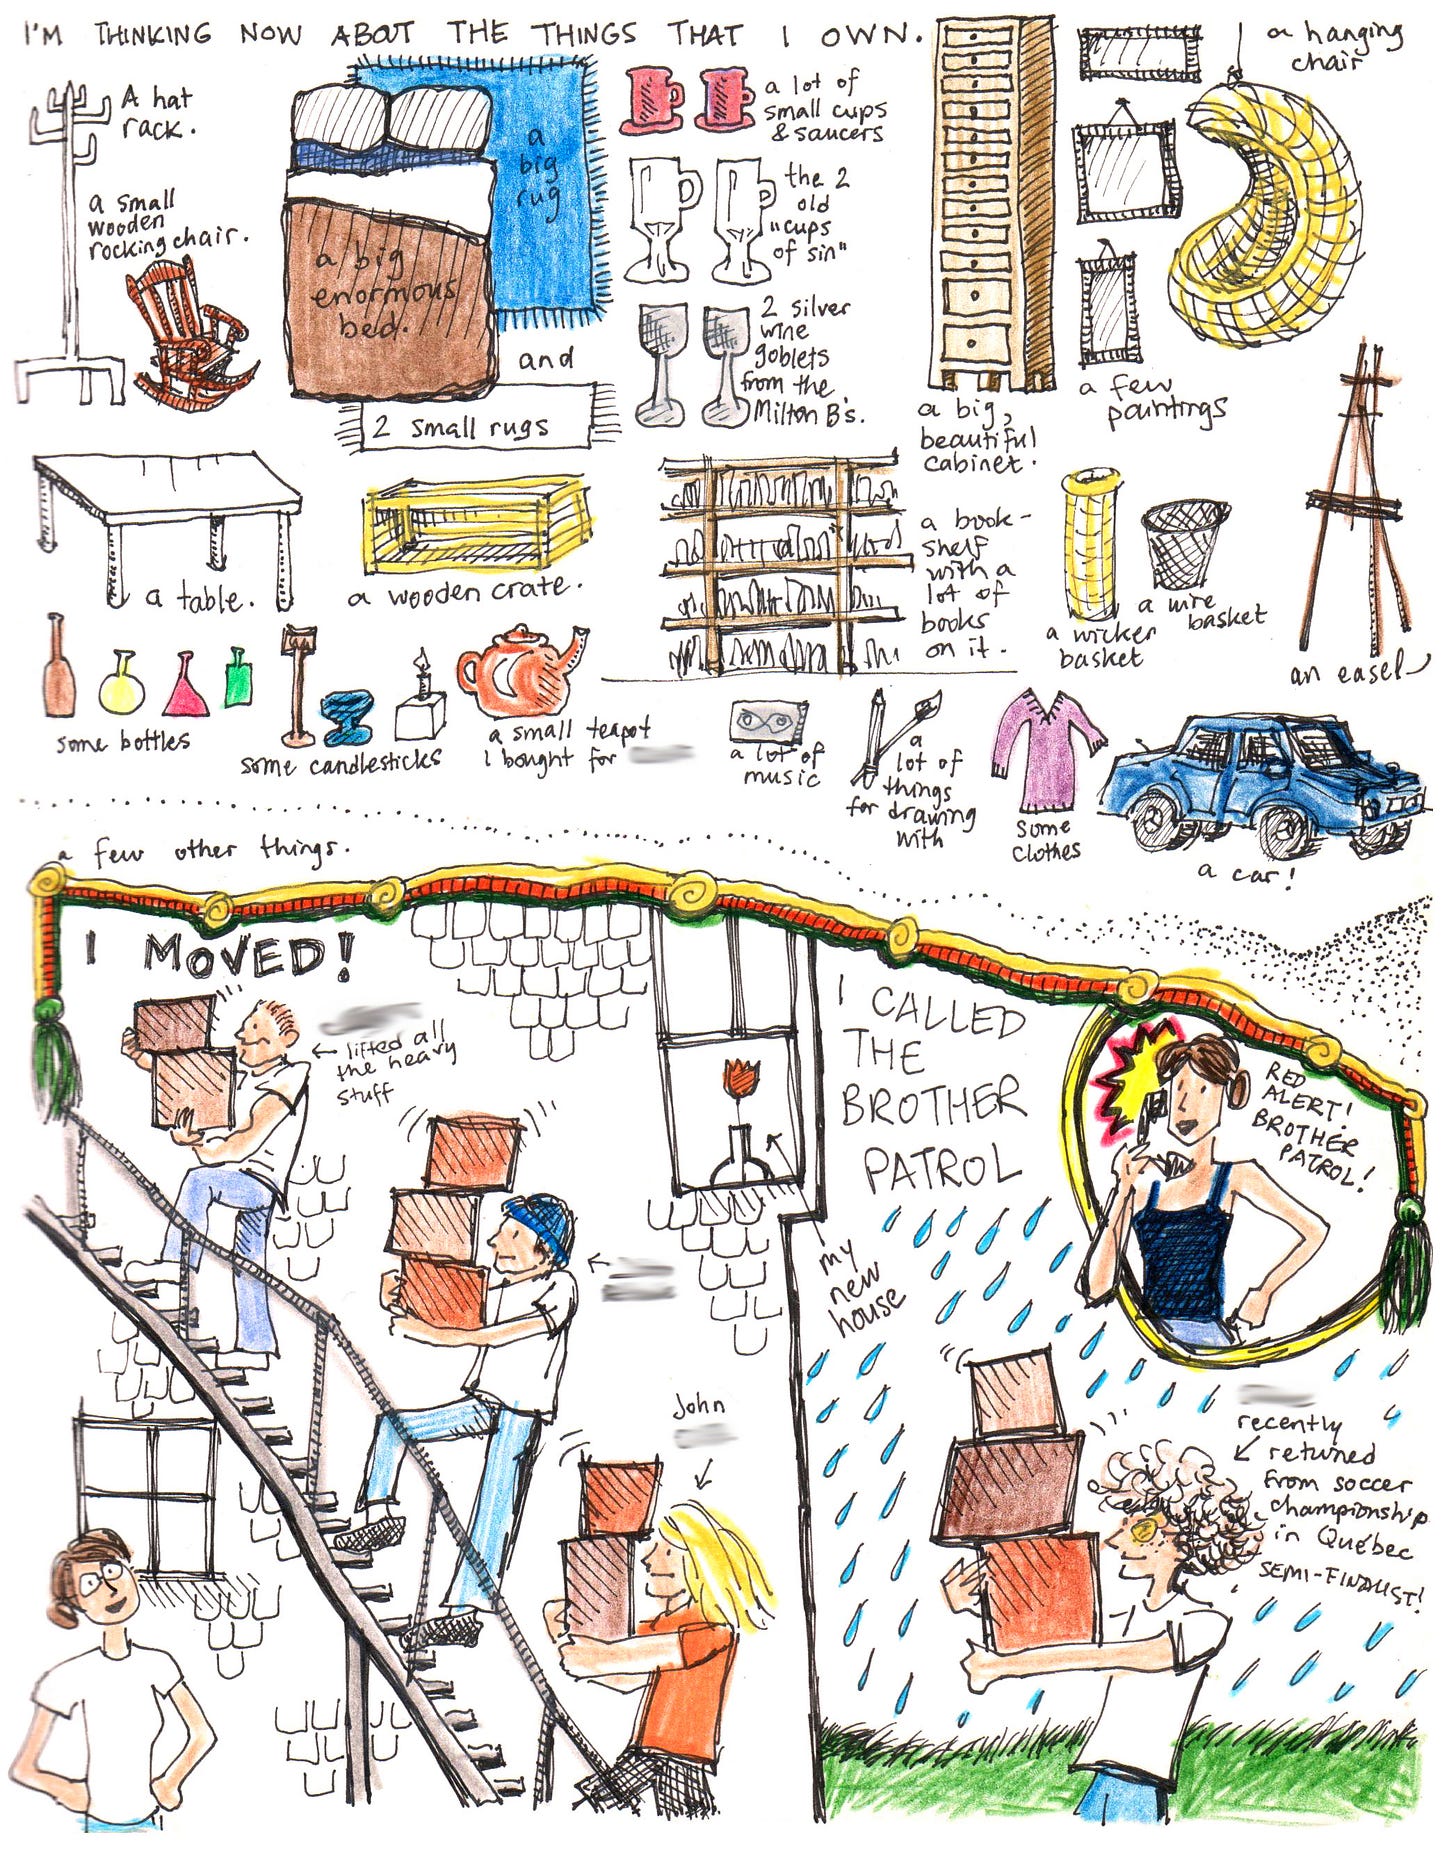 I'M THINKING NOW ABOUT THE THINGS THAT I OWN.
A hat
rack.
a small
wooden
rocking chair.
a
big
rug
a big
enormous
bed.
and
2 small rugs
a lot of
small cups
& saucers
the 2
old
"cups
of sin"
2 silver
wine
goblets
from the
Milton B's.
a big,
beautiful
cabinet.
a hanging
chair
a few
paintings
a table.
a wooden crate.
a book-
shelf
with a
lot of
books
on it.
a wicker
basket
a wire
basket
an easel
some bottles
some candlesticks
a small teapot
I bought for
a lot of
music
a
lot of
things
for drawing
with
some
clothes
a car!
a few other things.
I MOVED!
lifted all
the heavy
stuff
John
my
new
house
I CALLED
THE
BROTHER
PATROL
RED
ALERT!
BROTHER
PATROL!
recently
returned
from soccer
championship
in Québec
SEMI-FINALIST!